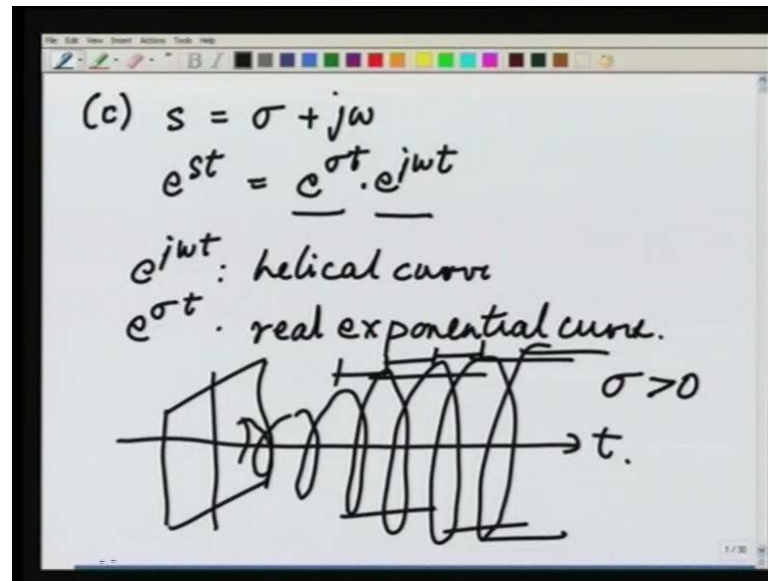 File Edit View Insert Actions Tools Help
B I
(c) s = σ + jω
e^st = e^σt . e^jωt
e^jωt : helical curve
e^σt . real exponential curve.
σ > 0
t.
1/30